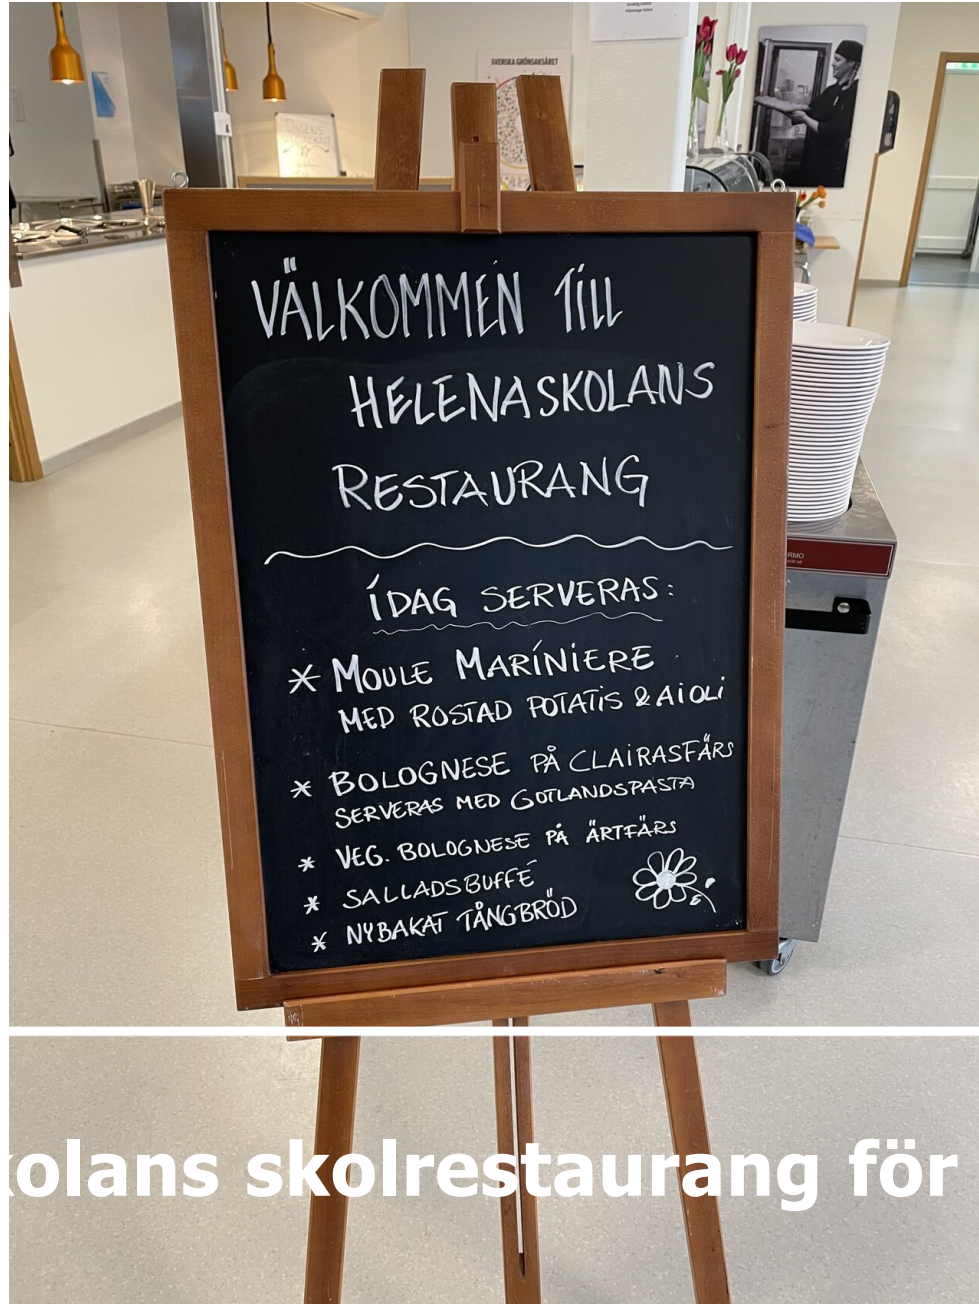 SVENSKA GRÖNSAKSÅRET
VÄLKOMMEN TILL
HELENASKOLANS
RESTAURANG
IDAG SERVERAS:
* MOULE MARINIERE
MED ROSTAD POTATIS & AIOLI
* BOLOGNESE PÅ CLAIRASFÄRS
SERVERAS MED GOTLANDSPASTA
* VEG. BOLOGNESE PÅ ÄRTFÄRS
* SALLADSBUFFÉ
* NYBAKAT TÅNGBRÖD
RMO
kolans skolrestaurang för